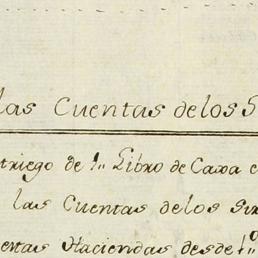 las Cuentas de los S
triego de 1,, Libro de Caxa c
las Cuentas de los Sir
entas Haciendas desde 1º